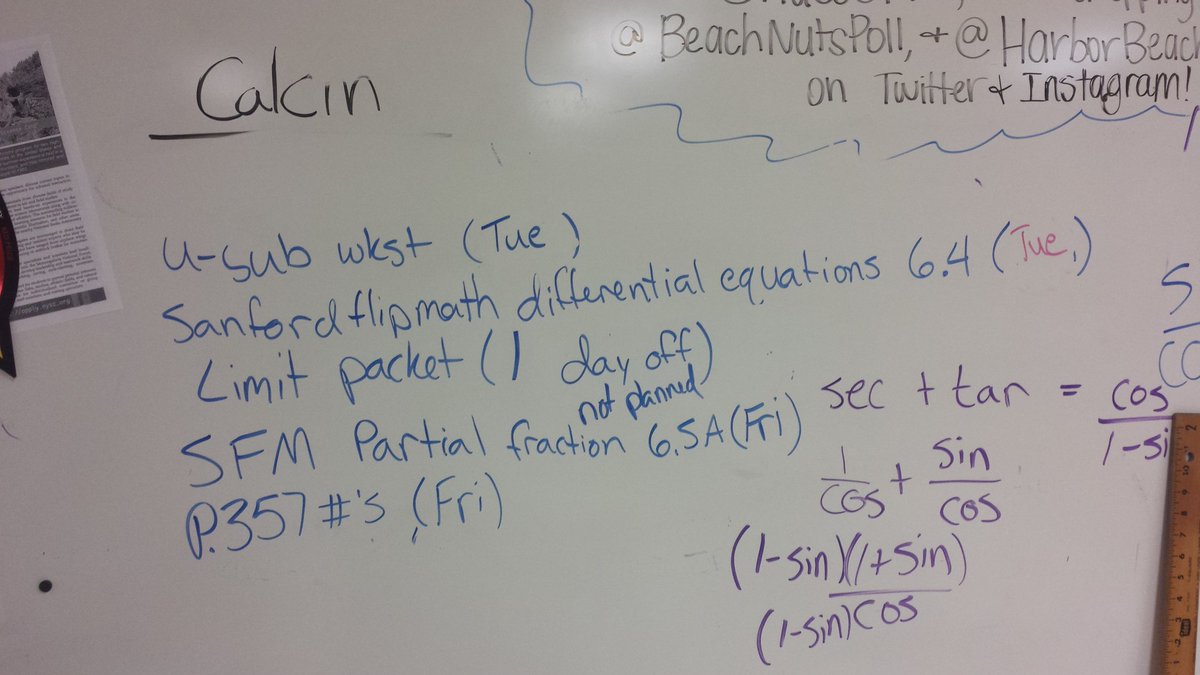 @ BeachNutsPoll, + @ HarborBeach
on Twitter + Instagram!
Calcin
u-sub wkst (Tue)
Sanford flipmath differential equations 6.4 (Tue.)
Limit packet (1 day off)
not planned
SFM Partial fraction 6.5A (Fri)
P.357 #'s (Fri)
sec + tan = cos
1-si
1/cos + sin/cos
(1-sin)(1+sin)
(1-sin)cos